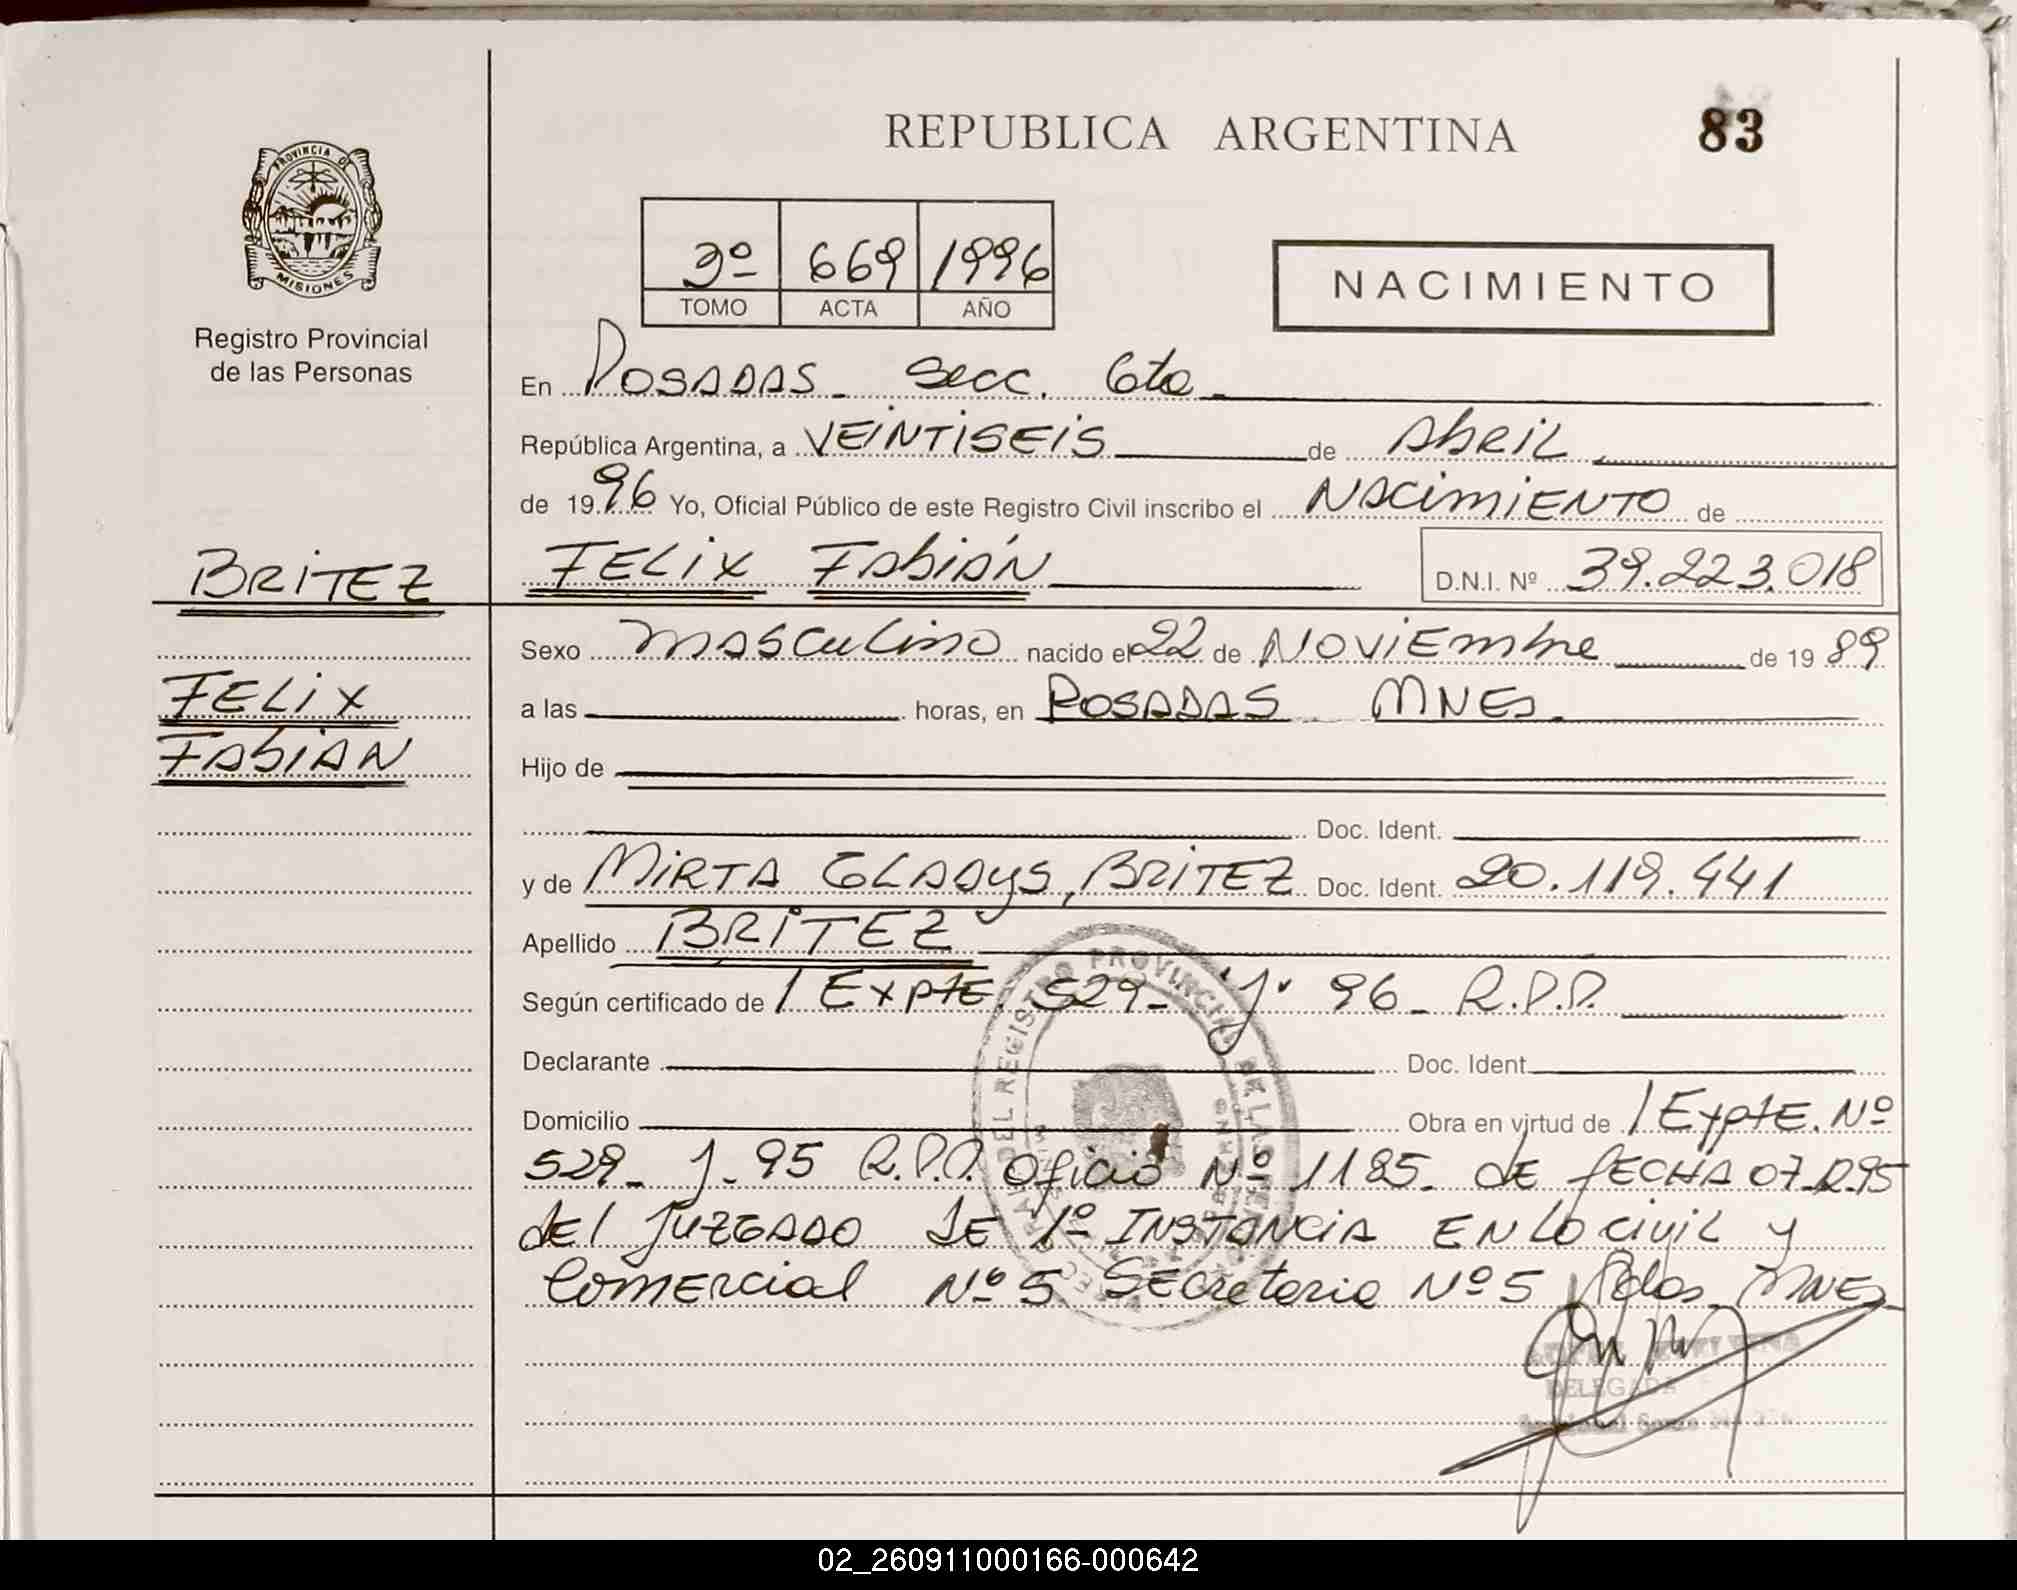 REPUBLICA ARGENTINA
83
PROVINCIA DE
MISIONES
Registro Provincial
de las Personas
3º 669 1996
TOMO ACTA AÑO
NACIMIENTO
En Posadas - Secc. 6ta -
República Argentina, a VEINTISEIS de Abril
de 1996 Yo, Oficial Público de este Registro Civil inscribo el NACIMIENTO de
BRITEZ
FELIX FABIÁN
D.N.I. Nº 39.223.018
Sexo masculino nacido el 22 de NOVIEmbre de 1989
FELIX
a las horas, en POSADAS MNES.
FABIAN
Hijo de
Doc. Ident.
y de MIRTA GLADYS, BRITEZ Doc. Ident. 20.119.441
Apellido BRITEZ
Según certificado de / Expte. 529 - "J" 96 - R.P.P.
Declarante Doc. Ident.
Domicilio Obra en virtud de / Expte. Nº
529 - J - 95 R.P.P. Oficio Nº 1185 - de fecha 07-12-95
del JUZGADO DE 1º INSTANCIA EN LO CIVIL y
Comercial Nº 5 Secretaria Nº 5 Pdas. MNES
DELEGADA
02_260911000166-000642